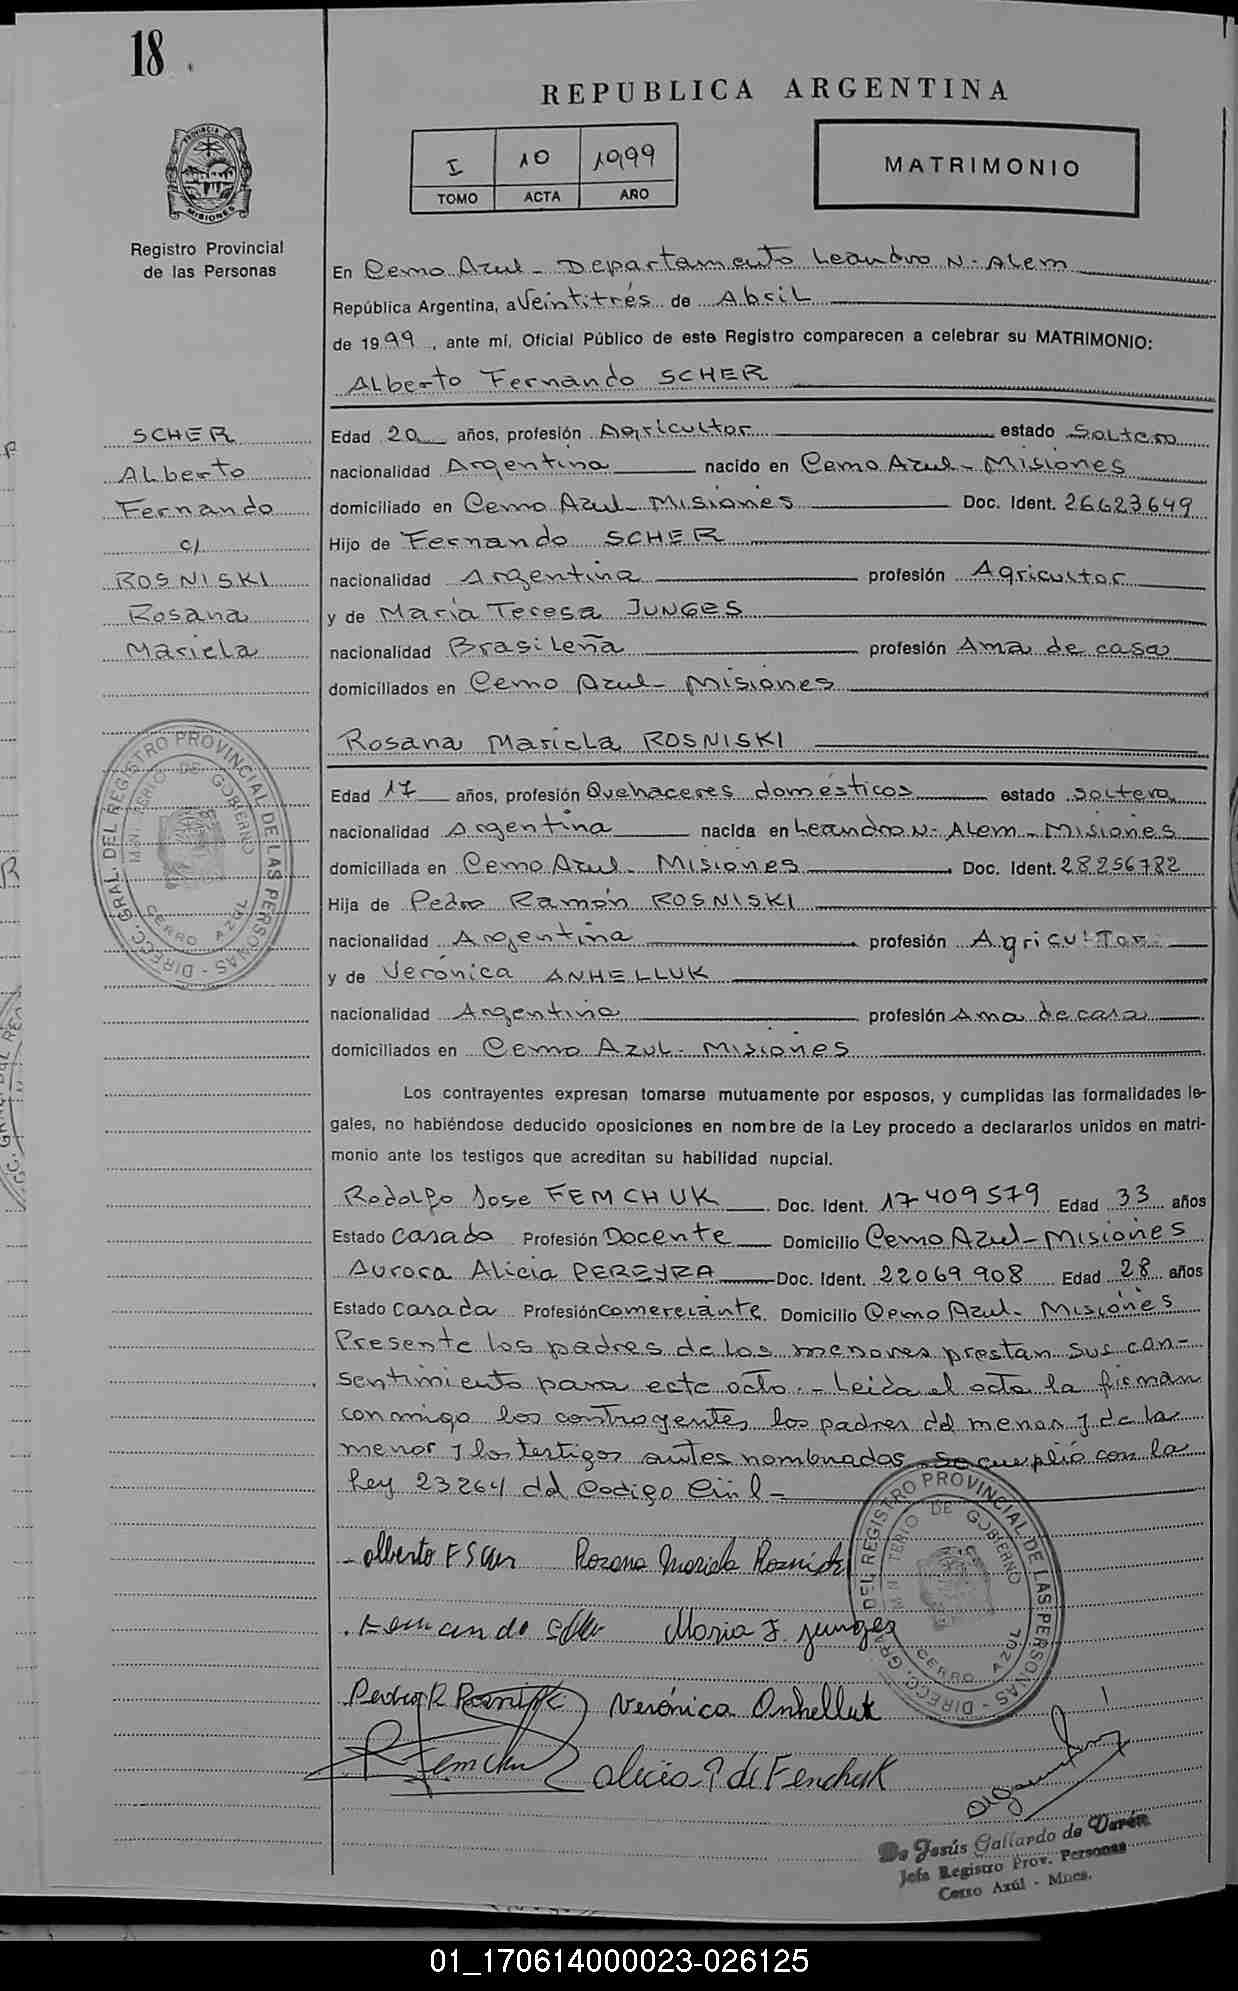 18
REPUBLICA ARGENTINA
PROVINCIA DE MISIONES
I 10 1999
TOMO ACTA AÑO
MATRIMONIO
Registro Provincial
de las Personas
En Cerro Azul - Departamento Leandro N. Alem
República Argentina, a Veintitrés de Abril
de 1999, ante mí, Oficial Público de este Registro comparecen a celebrar su MATRIMONIO:
Alberto Fernando SCHER
SCHER
Alberto
Fernando
c/
ROSNISKI
Rosana
Mariela
Edad 20 años, profesión Agricultor estado Soltero
nacionalidad Argentina nacido en Cerro Azul - Misiones
domiciliado en Cerro Azul - Misiones Doc. Ident. 26623649
Hijo de Fernando SCHER
nacionalidad Argentina profesión Agricultor
y de María Teresa JUNGES
nacionalidad Brasileña profesión Ama de casa
domiciliados en Cerro Azul - Misiones
Rosana Mariela ROSNISKI
Edad 17 años, profesión Quehaceres domésticos estado soltera
nacionalidad Argentina nacida en Leandro N. Alem - Misiones
domiciliada en Cerro Azul - Misiones Doc. Ident. 28256782
Hija de Pedro Ramón ROSNISKI
nacionalidad Argentina profesión Agricultor
y de Verónica ANHELLUK
nacionalidad Argentina profesión Ama de casa
domiciliados en Cerro Azul - Misiones
DIRECC. GRAL. DEL REGISTRO PROVINCIAL DE LAS PERSONAS
MINISTERIO DE GOBIERNO
CERRO AZUL
Los contrayentes expresan tomarse mutuamente por esposos, y cumplidas las formalidades le-
gales, no habiéndose deducido oposiciones en nombre de la Ley procedo a declararlos unidos en matri-
monio ante los testigos que acreditan su habilidad nupcial.
Rodolfo Jose FEMCHUK Doc. Ident. 17409579 Edad 33 años
Estado Casado Profesión Docente Domicilio Cerro Azul - Misiones
Aurora Alicia PEREYRA Doc. Ident. 22069908 Edad 28 años
Estado Casada Profesión comerciante Domicilio Cerro Azul - Misiones
Presente los padres de los menores prestan sus con-
sentimiento para este acto. - Leida el acta la firman
conmigo los contrayentes, los padres del menor y de la
menor y los testigos antes nombrados. Se cumplió con la
Ley 23264 del Codigo Civil -
Alberto F Scher Rozana Mariela Rosniski
Fernando Scher Maria T. Junges
Pedro R Rosniski Verónica Anhelluk
R Femchuk Alicia P de Fenchuk
DIRECC. GRAL. DEL REGISTRO PROVINCIAL DE LAS PERSONAS
MINISTERIO DE GOBIERNO
CERRO AZUL
De Jesús Gallardo de Varén
Jefa Registro Prov. Personas
Cerro Azúl - Mnes.
01_170614000023-026125